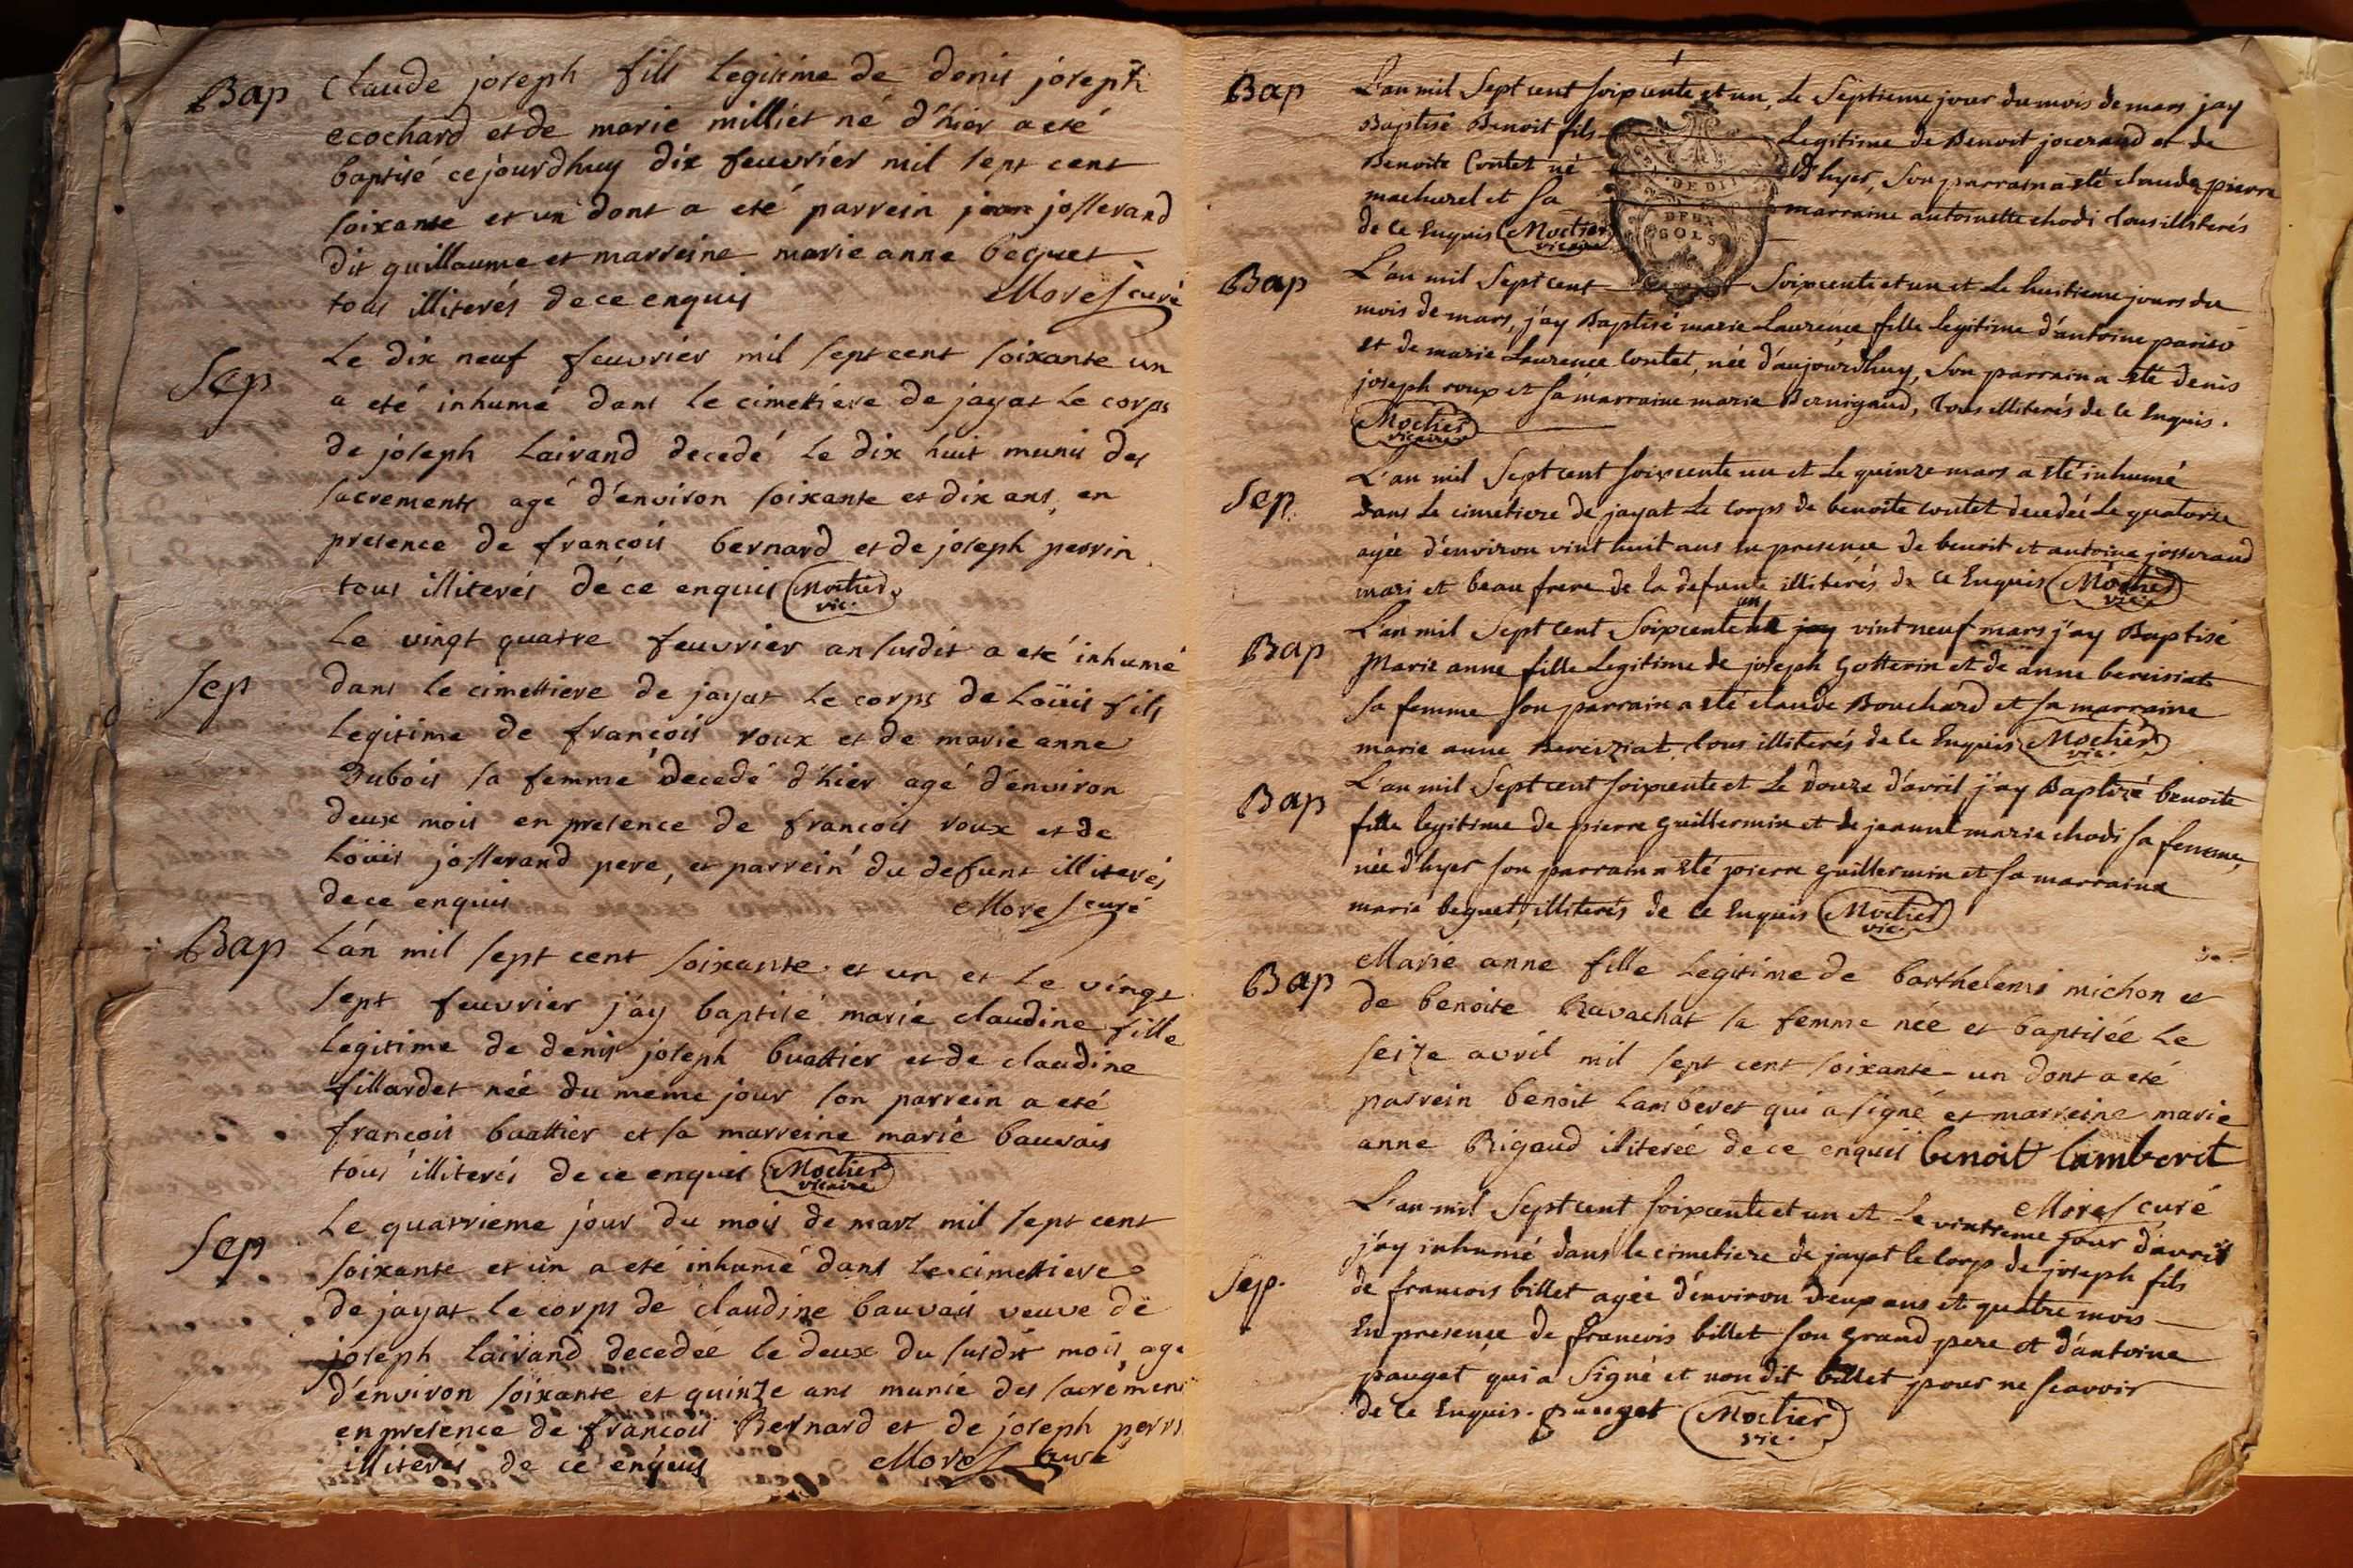 Bap
Claude joseph fils legitime de denis joseph
ecochard et de marie milliet né d'hier a eté
baptisé ce jourdhuy dix feuvrier mil sept cent
soixante et un dont a eté parrein jean josserand
dit guillaume et marreine marie anne beguet
tous illiterés de ce enquis Mores curé
Sep
Le dix neuf feuvrier mil sept cent soixante un
a eté inhumé dans le cimettiere de jayat le corps
de joseph Lairand decedé le dix huit munis des
sacrements agé d'environ soixante et dix ans, en
presence de françois bernard et de joseph perrin
tous illiterés de ce enquis Moctier
vic.
Le vingt quatre feuvrier an susdit a eté inhumé
Sep
dans le cimettiere de jayat le corps de Loüis fils
legitime de françois roux et de marie anne
Dubois sa femme decedé d'hier agé d'environ
deux mois en presence de françois roux et de
Loüis josserand pere, et parrein du defunt illiterés
de ce enquis Mores curé
Bap
L'an mil sept cent soixante et un et le vingt
sept feuvrier j'ay baptisé marie claudine fille
legitime de denis joseph buattier et de claudine
fillardet née du méme jour son parrein a eté
françois buattier et sa marreine marie bauvais
tous illiterés de ce enquis Moctier
vicaire
Sep
Le quatrieme jour du mois de mars mil sept cent
soixante et un a eté inhumé dans le cimettiere
de jayat le corps de claudine bauvais veuve de
joseph Lairand decedée le deux du susdit mois, agé
d'environ soixante et quinze ans munie des sacremens
en presence de françois Bernard et de joseph perri
illiterés de ce enquis Mores curé
Bap
L'an mil Sept cent soixcente et un, Le Septieme jour du mois de mars jay
Baptisé Benoit fils Legitime de Benoit jocerand et de
Benoite Contet né d'hyer, Son parrain a été claude pierre
machurel et Sa marraine antoinette chodi tous illiterés
de ce Enquis Moctier
vicaire
GEN. DE DIJON
Bap
L'an mil Sept cent Soixcente et un et le huitieme jours du
mois de mars, j'ay Baptisé marie Laurence fille legitime d'antoine
et de marie Laurence Contet, née d'aujourdhuy, Son parrain a été denis
joseph roux et sa marraine marie Bernigaud, tous illiterés de ce Enquis.
Moctier
vicaire
Sep.
L'an mil Sept cent soixcente un et le quinze mars a été inhumé
dans le cimétiere de jayat le Corps de benoite contet decedée le quatorze
agée d'environ vint huit ans en presence de benoit et antoine josserand
mari et beau frere de la defunte illiterés de ce Enquis Moctier
vic.
Bap
L'an mil Sept cent Soixcente un vint neuf mars j'ay Baptisé
Marie anne fille Legitime de joseph Gotterin et de anne bereisiat
sa femme son parrain a été claude Bouchard et sa marraine
marie anne Bereiziat tous illiterés de ce Enquis Moctier
vic.
Bap
L'an mil Sept cent soixcente et Le Douze d'avril j'ay Baptizé benoite
fille legitime de pierre Guillermin et de jeanne marie chodi sa femme,
née d'hyer son parrain a été pierre guillermin et sa marraine
marie beguet, illiterés de ce Enquis Moctier
vic.
Bap
Marie anne fille legitime de barthelemi michon et
de benoite Ravachat sa femme née et baptisée le
seize avril mil sept cent soixante-un dont a eté
parrein benoit Lamberet qui a signé et marreine marie
anne Rigaud illiterée de ce enquis benoit lamberet
Mores curé
L'an mil Sept cent soixcente et un et le vintieme jour d'avril
Sep.
j'ay inhumé dans le cimetiere de jayat le Corps de joseph fils
de francois billet agée d'environ deux ans et quatre mois
En presence de francois billet son grand pere et d'antoine
pauget qui a Signé et non dit billet pour ne scavoir
de ce Enquis. pauget Moctier
vic.